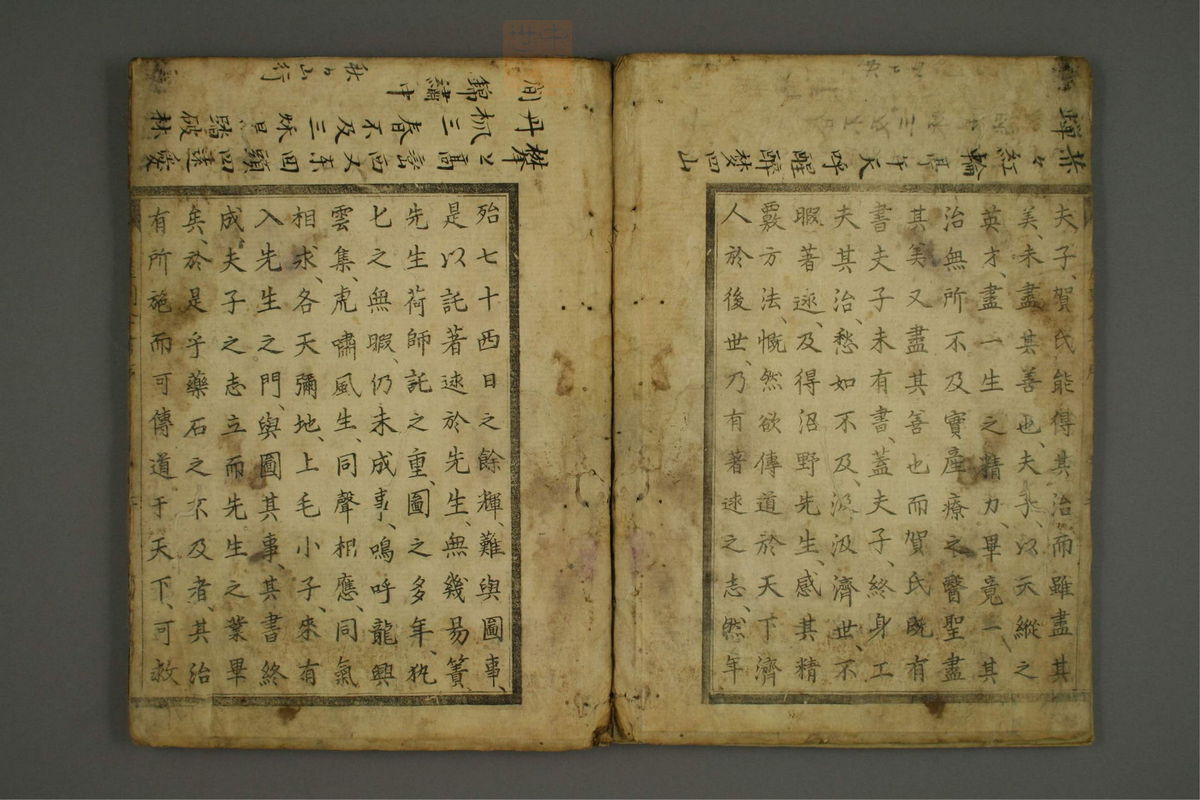 夫子、賀氏能得其治而雖盡其
美、未盡其善也、夫子、以天縱之
英才、盡一生之精力、畢竟一、其
治無所不及實產療之醫聖盡
其美又盡其善也而賀氏旣有
書夫子未有書、蓋夫子、終身工
夫其治、愁如不及、汲汲濟世、不
暇著述、及得沼野先生、感其精
覈方法、慨然欲傳道於天下濟
人於後世、乃有著述之志、然年
錦繡中
殆七十西日之餘輝、難與圖事、
是以託著述於先生、無幾易簀、
先生荷師託之重、圖之多年、
匕之無暇、仍未成事、嗚呼龍興
雲集、虎嘯風生、同聲相應、同氣
相求、各天彌地、上毛小子、來有
入先生之門、與圖其事、其書終
成、夫子之志立而先生之業畢
矣、於是乎藥石之不及者、其治
有所施而可傳道于天下、可救